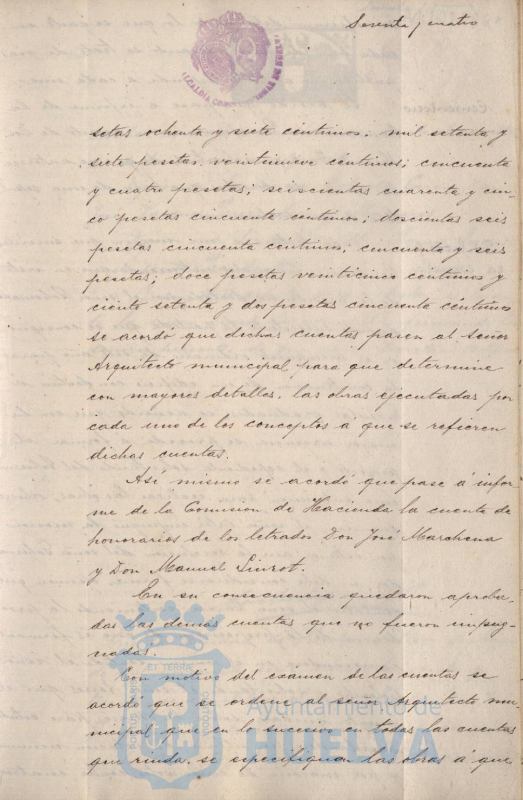 Sesenta y cuatro
ALCALDÍA CONSTITUCIONAL DE HUELVA
setas ochenta y siete céntimos; mil setenta y
siete pesetas, veintinueve céntimos; cincuenta
y cuatro pesetas; seiscientas cuarenta y cin-
co pesetas cincuenta céntimos; doscientas seis
pesetas cincuenta céntimos; cincuenta y seis
pesetas; doce pesetas veinticinco céntimos y
ciento setenta y dos pesetas cincuenta céntimos
se acordó que dichas cuentas pasen al Señor
Arquitecto municipal para que determine
con mayores detalles, las obras ejecutadas por
cada uno de los conceptos á que se refieren
dichas cuentas.
Así mismo se acordó que pase á infor-
me de la Comisión de Hacienda la cuenta de
honorarios de los letrados Don José Marchena
y Don Manuel Siurot.
En su consecuencia quedaron aproba-
das las demás cuentas que no fueron impug-
nadas.
Con motivo del exámen de las cuentas se
acordó que se ordene al señor Arquitecto mu-
nicipal que en lo sucesivo en todas las cuentas
que rinda, se especifiquen las obras á que
ET TERRÆ
PORTUS MARIS
CUSTODIA
Ayuntamiento de
HUELVA